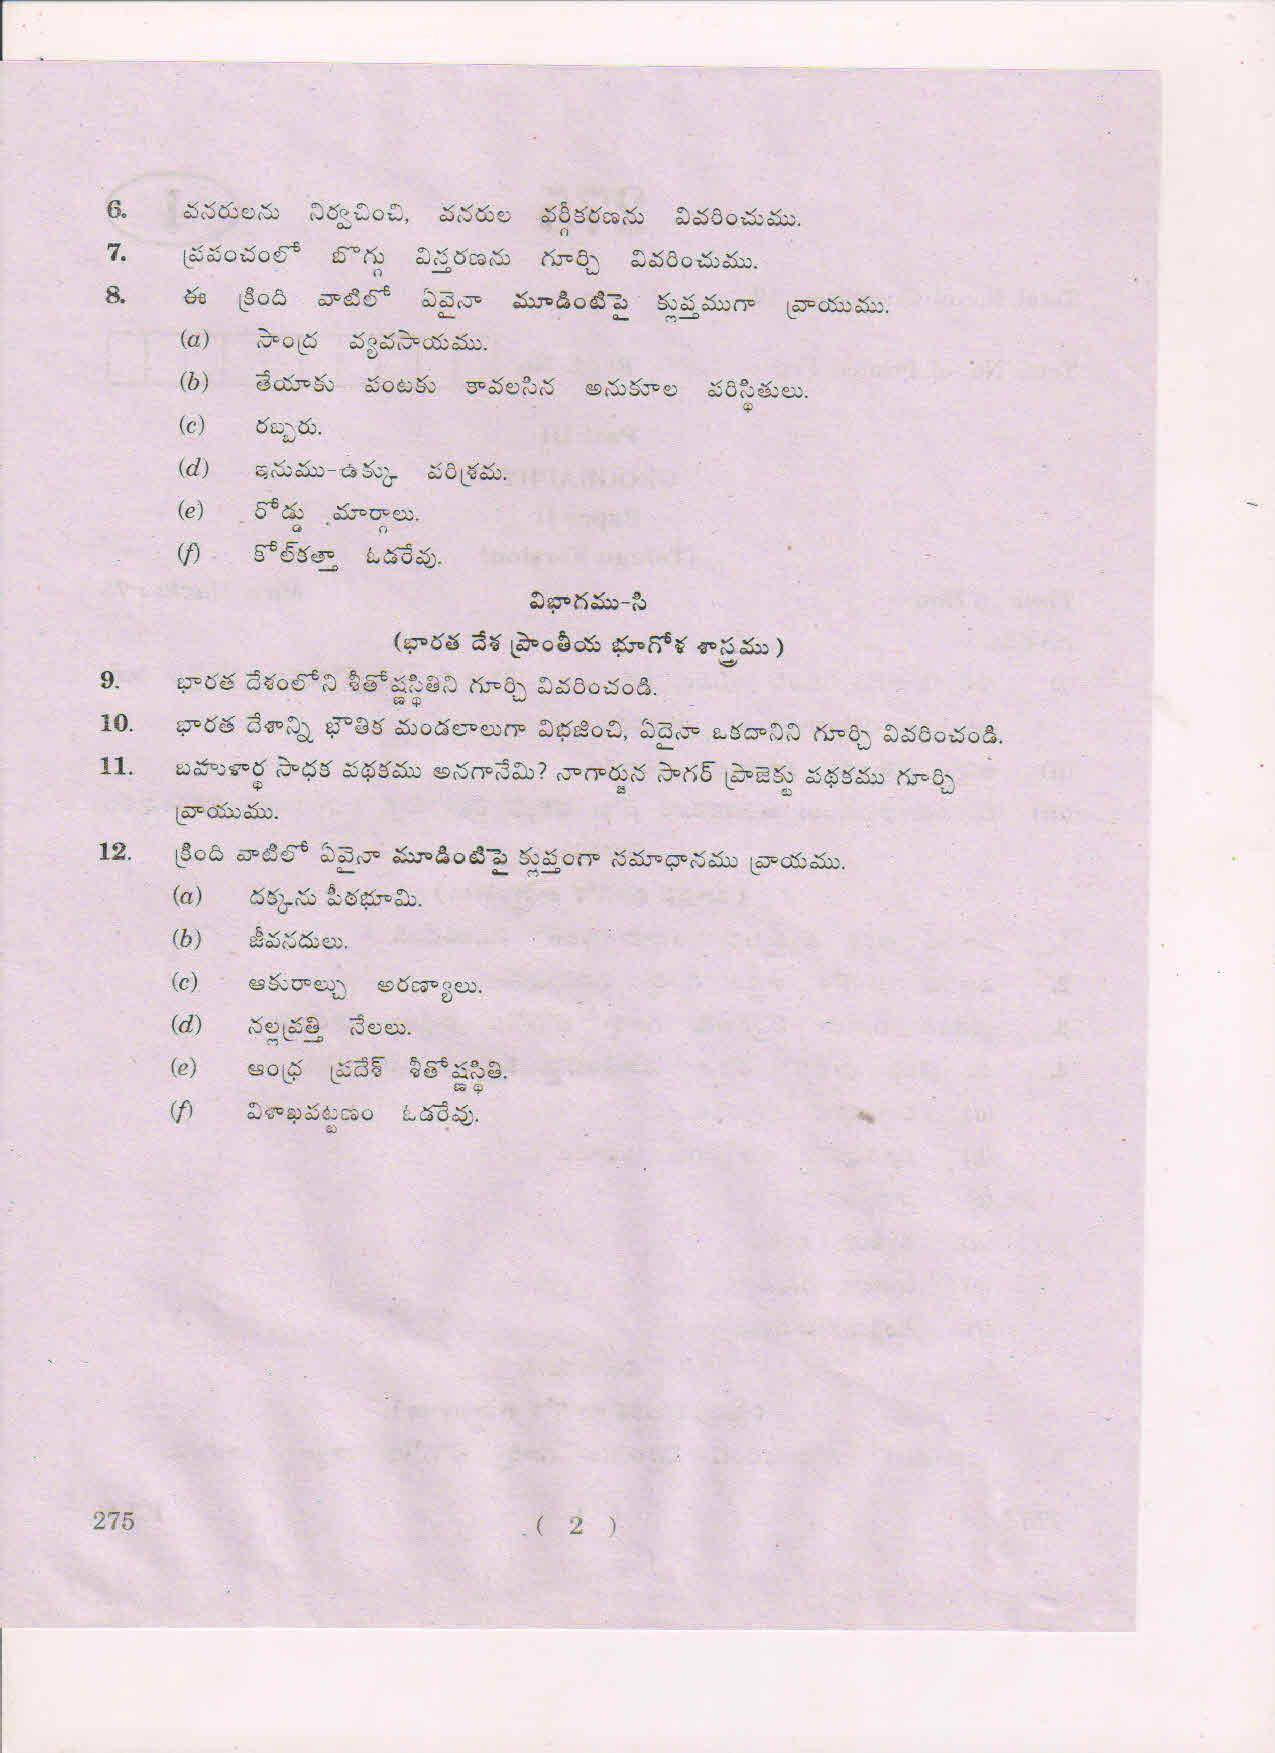 6. వనరులను నిర్వచించి, వనరుల వర్గీకరణను వివరించుము.
7. ప్రపంచంలో బొగ్గు విస్తరణను గూర్చి వివరించుము.
8. ఈ క్రింది వాటిలో ఏవైనా మూడింటిపై క్లుప్తముగా వ్రాయుము.
(a) సాంద్ర వ్యవసాయము.
(b) తేయాకు పంటకు కావలసిన అనుకూల పరిస్థితులు.
(c) రబ్బరు.
(d) ఇనుము-ఉక్కు పరిశ్రమ.
(e) రోడ్డు మార్గాలు.
(f) కోల్‌కత్తా ఓడరేవు.
విభాగము-సి
(భారత దేశ ప్రాంతీయ భూగోళ శాస్త్రము)
9. భారత దేశంలోని శీతోష్ణస్థితిని గూర్చి వివరించండి.
10. భారత దేశాన్ని భౌతిక మండలాలుగా విభజించి, ఏదైనా ఒకదానిని గూర్చి వివరించండి.
11. బహుళార్థ సాధక పథకము అనగానేమి? నాగార్జున సాగర్ ప్రాజెక్టు పథకము గూర్చి
వ్రాయుము.
12. క్రింది వాటిలో ఏవైనా మూడింటిపై క్లుప్తంగా సమాధానము వ్రాయము.
(a) దక్కను పీఠభూమి.
(b) జీవనదులు.
(c) ఆకురాల్చు అరణ్యాలు.
(d) నల్లప్రత్తి నేలలు.
(e) ఆంధ్ర ప్రదేశ్ శీతోష్ణస్థితి.
(f) విశాఖపట్టణం ఓడరేవు.
275 ( 2 )